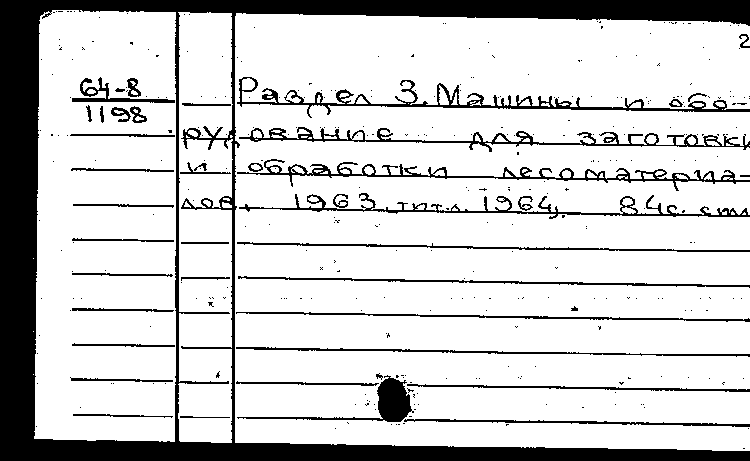 2
64-8
1198
Раздел 3. Машины и обо-
рудование для заготовки
и обработки лесоматериа-
лов. 1963, тит.л. 1964. 84с. стл